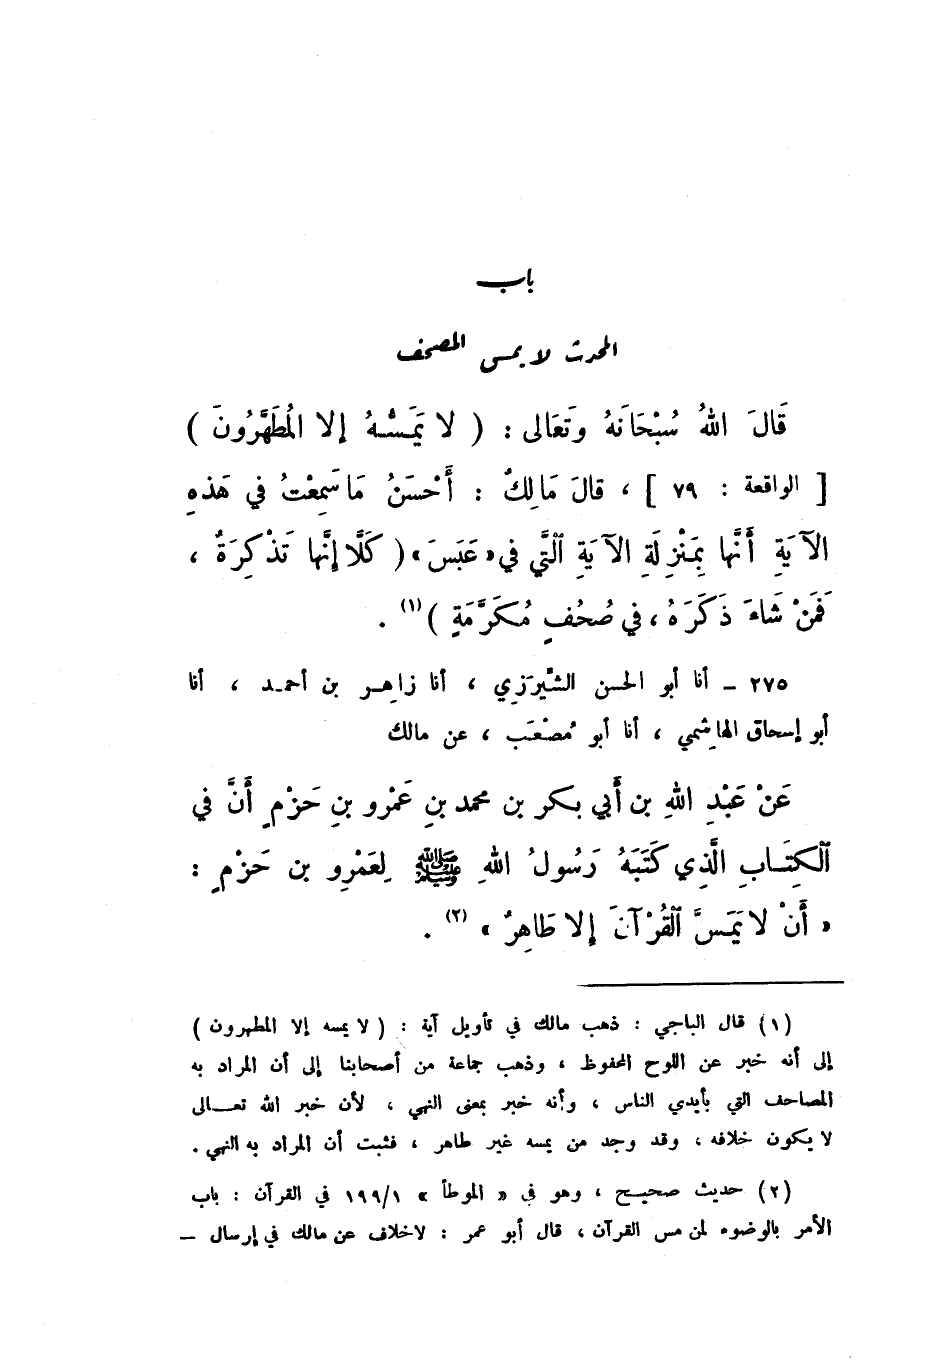 باب
المحدث لا يمس المصحف
قَالَ اللهُ سُبْحَانَهُ وَتَعَالى : ( لا يَمَسُّهُ إلا المُطَهَّرُونَ )
[ الواقعة : ٧٩ ] ، قالَ مَالِكٌ : أَحْسَنُ مَا سَمِعْتُ في هَذهِ
الآيَةِ أَنَّها بِمَنْزِلَةِ الآيَةِ الَّتي في « عَبَسَ » ( كَلَّا إنَّها تَذْكِرَةٌ ،
فَمَنْ شَاءَ ذَكَرَهُ ، في صُحُفٍ مُكَرَّمَةٍ ) (١) .
٢٧٥ – أنا أبو الحسن الشِّيرَزِي ، أنا زاهِر بن أحمد ، أنا
أبو إسحاق الهاشِمي ، أنا أبو مُصْعَب ، عن مالك
عَنْ عَبْدِ اللهِ بن أَبي بكر بن محمد بنِ عَمْرو بنِ حَزْمٍ أَنَّ في
الْكِتَابِ الَّذِي كَتَبَهُ رَسُولُ اللهِ ﷺ لِعَمْرِو بن حَزْمٍ :
« أَنْ لا يَمَسَّ القُرْآنَ إلا طَاهِرٌ » (٢) .
(١) قال الباجي : ذهب مالك في تأويل آية : ( لا يمسه إلا المطهرون )
إلى أنه خبر عن اللوح المحفوظ ، وذهب جماعة من أصحابنا إلى أن المراد به
المصاحف التي بأيدي الناس ، وأنه خبر بمعنى النهي ، لأن خبر الله تعالى
لا يكون خلافه ، وقد وجد من يمسه غير طاهر ، فثبت أن المراد به النهي .
(٢) حديث صحيح ، وهو في « الموطأ » ١٩٩/١ في القرآن : باب
الأمر بالوضوء لمن مس القرآن ، قال أبو عمر : لاخلاف عن مالك في إرسال –